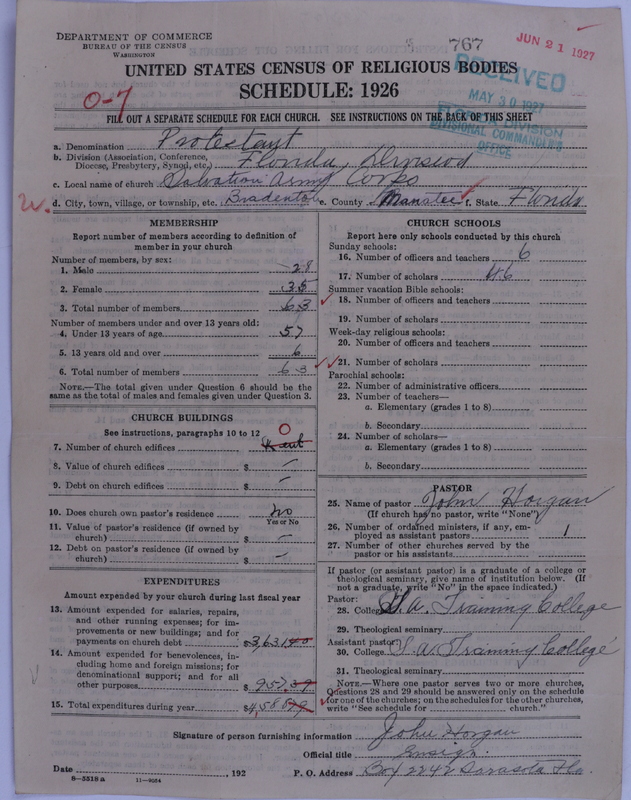 DEPARTMENT OF COMMERCE
BUREAU OF THE CENSUS
WASHINGTON
767
JUN 21 1927
UNITED STATES CENSUS OF RELIGIOUS BODIES
SCHEDULE: 1926
RECEIVED
MAY 30 1927
FLORIDA DIVISION
DIVISIONAL COMMANDER'S
OFFICE
0-7
FILL OUT A SEPARATE SCHEDULE FOR EACH CHURCH. SEE INSTRUCTIONS ON THE BACK OF THIS SHEET
a. Denomination Protestant
b. Division (Association, Conference, Diocese, Presbytery, Synod, etc.) Florida Division
c. Local name of church Salvation Army Corps
d. City, town, village, or township, etc. Bradenton e. County Manatee f. State Florida
MEMBERSHIP
Report number of members according to definition of
member in your church
Number of members, by sex:
1. Male 28
2. Female 35
3. Total number of members 63
Number of members under and over 13 years old:
4. Under 13 years of age 57
5. 13 years old and over 6
6. Total number of members 63
NOTE.—The total given under Question 6 should be the
same as the total of males and females given under Question 3.
CHURCH BUILDINGS
See instructions, paragraphs 10 to 12 0
7. Number of church edifices
8. Value of church edifices $ —
9. Debt on church edifices $ —
10. Does church own pastor's residence No
Yes or No
11. Value of pastor's residence (if owned by
church) $ —
12. Debt on pastor's residence (if owned by
church) $ —
EXPENDITURES
Amount expended by church during last fiscal year
13. Amount expended for salaries, repairs,
and other running expenses; for im-
provements or new buildings; and for
payments on church debt $3,631.40
14. Amount expended for benevolences, in-
cluding home and foreign missions; for
denominational support; and for all
other purposes $957.39
15. Total expenditures during year $4,588.79
CHURCH SCHOOLS
Report here only schools conducted by this church
Sunday schools:
16. Number of officers and teachers 6
17. Number of scholars 46
Summer vacation Bible schools:
18. Number of officers and teachers
19. Number of scholars
Week-day religious schools:
20. Number of officers and teachers
21. Number of scholars
Parochial schools:
22. Number of administrative officers
23. Number of teachers—
a. Elementary (grades 1 to 8)
b. Secondary
24. Number of scholars—
a. Elementary (grades 1 to 8)
b. Secondary
PASTOR
25. Name of pastor John Horgan
(If church has no pastor, write "None")
26. Number of ordained ministers, if any, em-
ployed as assistant pastors 1
27. Number of other churches served by the
pastor or his assistants
If pastor (or assistant pastor) is a graduate of a college or
theological seminary, give name of institution below. (If
not a graduate, write "No" in the space indicated.)
Pastor:
28. College S.A. Training College
29. Theological seminary
Assistant pastor:
30. College S.A. Training College
31. Theological seminary
NOTE.—Where one pastor serves two or more churches,
Questions 28 and 29 should be answered only on the schedule
for one of the churches; on the schedules for the other churches,
write "See schedule for church."
Signature of person furnishing information John Horgan
Official title Ensign
Date , 192 P. O. Address Box 2242 Sarasota Fla.
8-5518 a 11-9024